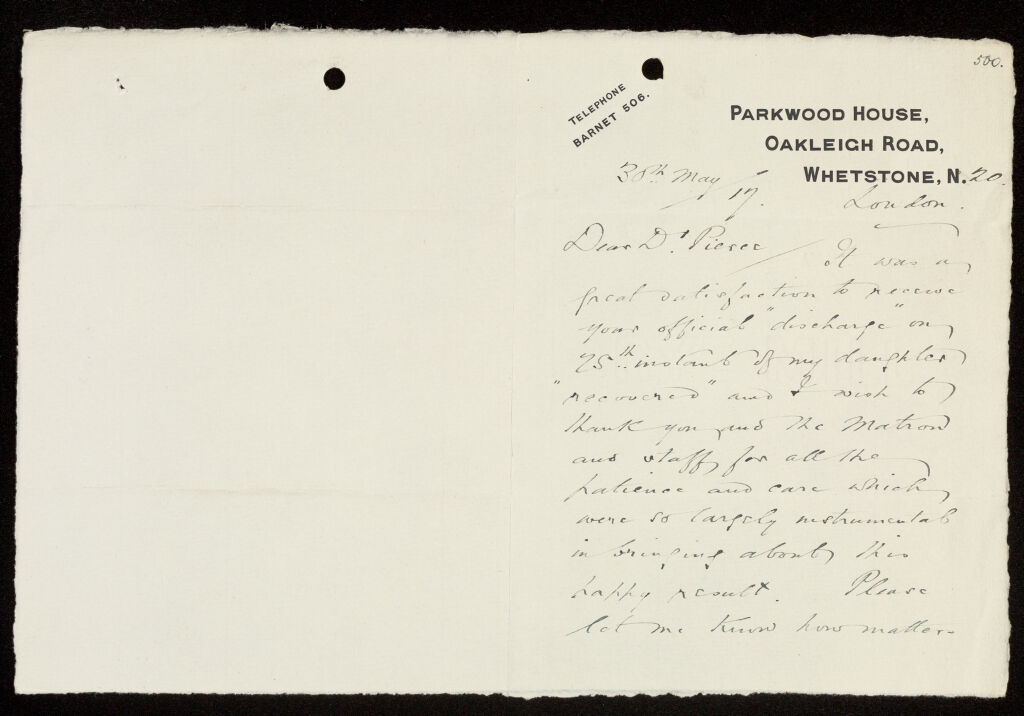 500.
TELEPHONE
BARNET 506.
PARKWOOD HOUSE,
OAKLEIGH ROAD,
WHETSTONE, N.20.
London.
30th May
/17.
Dear Dr. Pierce
It was a
great satisfaction to receive
your official "discharge" on
25th instant of my daughter
"recovered" and I wish to
thank you and the Matron
and staff for all the
patience and care which
were so largely instrumental
in bringing about this
happy result. Please
let me know how matters